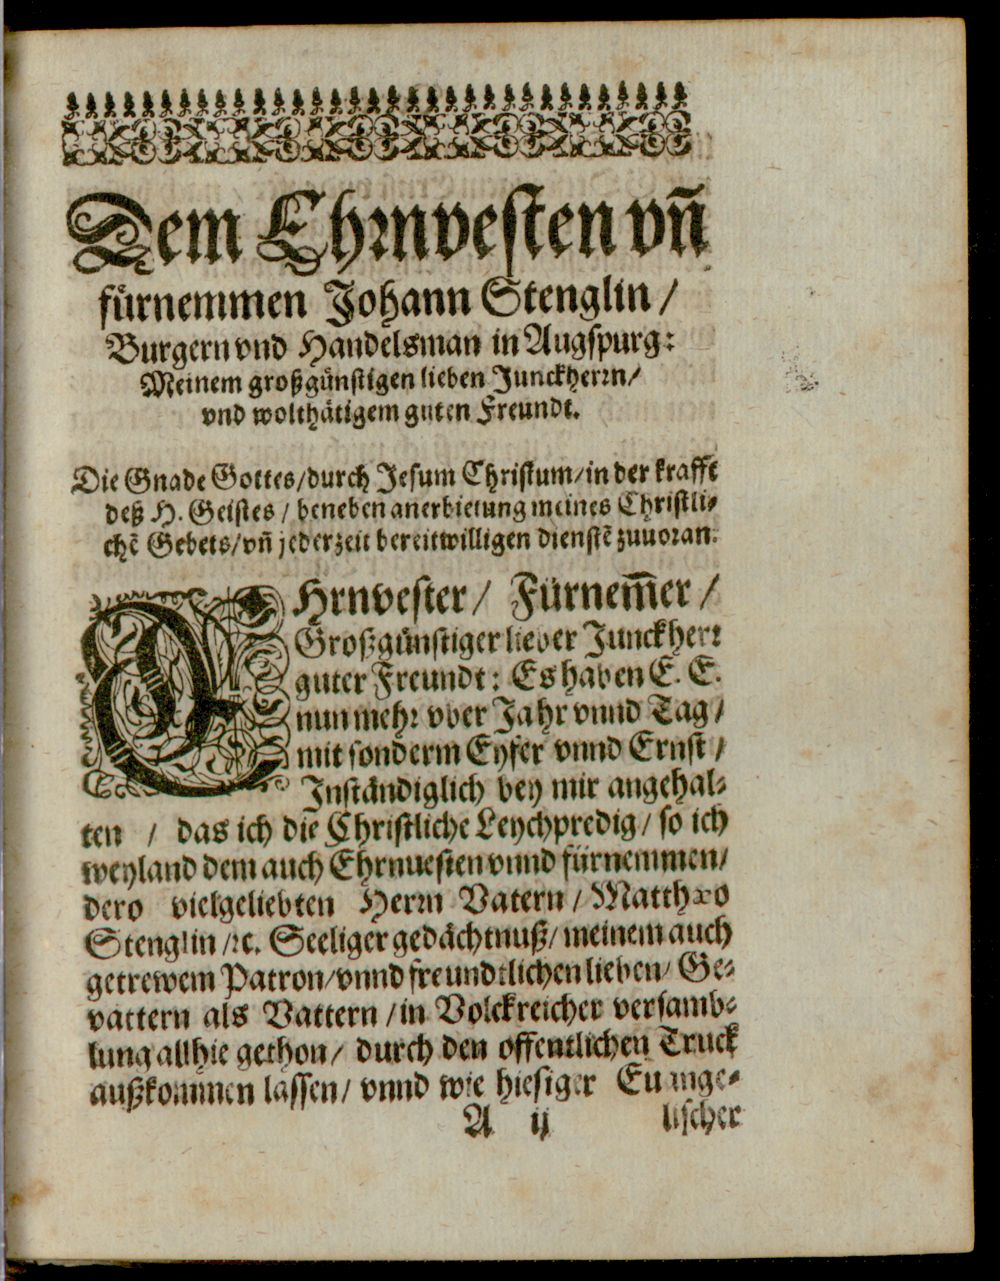 Dem Ehrnvesten vn̄
fürnemmen Johann Stenglin /
Burgern vnd Handelsman in Augspurg:
Meinem großgünstigen lieben Junckherrn/
vnd wolthätigem guten Freundt.
Die Gnade Gottes/durch Jesum Christum/in der krafft
deß H. Geistes / beneben anerbietung meines Christli-
chē Gebets/vn̄ jederzeit bereitwilligen dienstē zuuoran.
EHrnvester / Fürnem̄er /
Großgünstiger lieber Junckherr
guter Freundt: Es haben E. E.
nun mehr vber Jahr vnnd Tag /
mit sonderm Eyfer vnnd Ernst /
Inständiglich bey mir angehal-
ten / das ich die Christliche Leychpredig / so ich
weyland dem auch Ehrnuesten vnnd fürnemmen/
dero vielgeliebten Herrn Vatern / Matthæo
Stenglin /ꝛc. Seeliger gedächtnuß/ meinem auch
getrewem Patron/vnnd freundtlichen lieben/ Ge-
vattern als Vattern / in Volckreicher versamb-
lung allhie gethon/ durch den offentlichen Truck
außkommen lassen/ vnnd wie hiesiger Euange-
A ij lischer